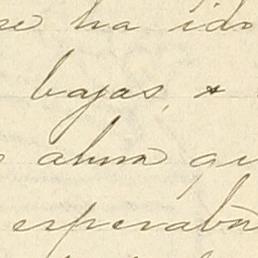 se ha ido
bajas, &
alma qu
esperaba